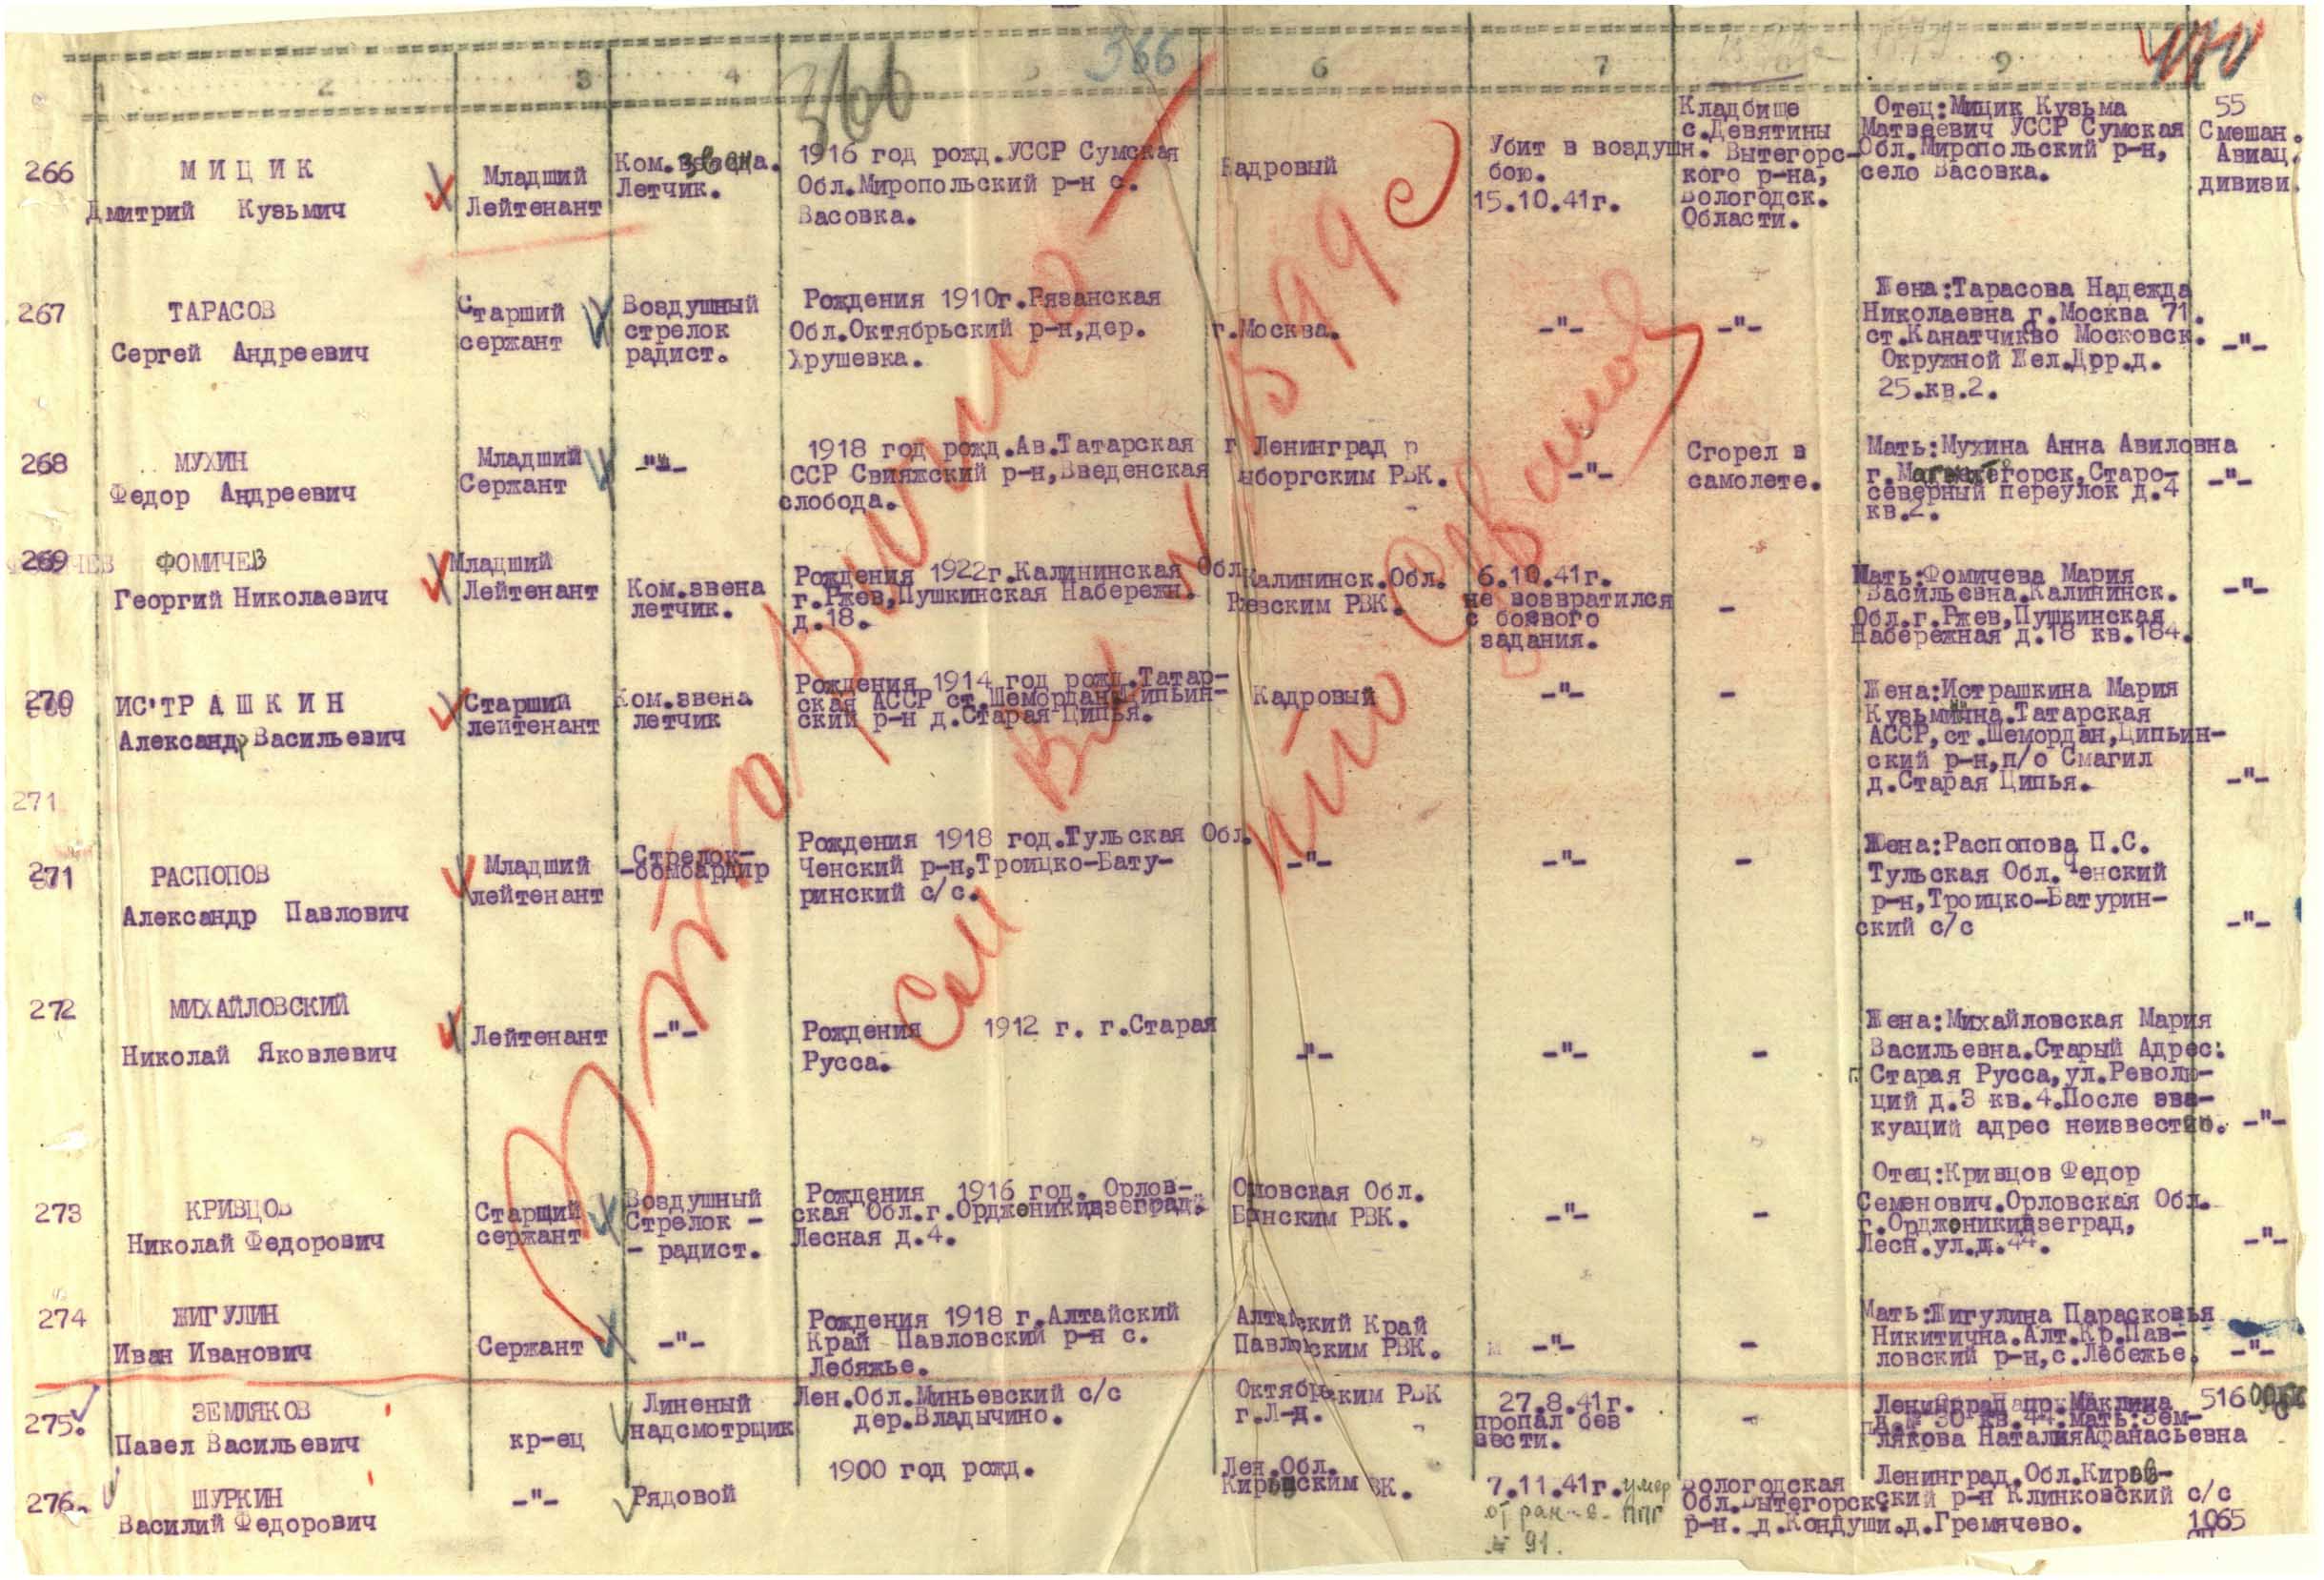 1 2 3 4 5 6 7 9
366
366
266
МИЦИК
Дмитрий Кузьмич
Младший
Лейтенант
Ком. звена.
Летчик.
1916 год рожд.УССР Сумская
Обл.Миропольский р-н с.
Васовка.
Кадровый
Убит в воздушн.
бою.
15.10.41г.
Кладбище
с.Девятины
Вытегорс-
кого р-на,
Вологодск.
Области.
Отец:Мицик Кузьма
Матвеевич УССР Сумская
Обл.Миропольский р-н,
село Васовка.
55
Смешан.
Авиац.
дивизи.
267
ТАРАСОВ
Сергей Андреевич
Старший
сержант
Воздушный
стрелок
радист.
Рождения 1910г.Рязанская
Обл.Октябрьский р-н,дер.
Хрушевка.
г.Москва.
-"-
-"-
Жена:Тарасова Надежда
Николаевна г.Москва 71.
ст.Канатчикво Московск.
Окружной Жел.Дор.д.
25.кв.2.
-"-
268
МУХИН
Федор Андреевич
Младший
Сержант
-"-
1918 год рожд.Ав.Татарская
ССР Свияжский р-н,Введенская
слобода.
г Ленинград
ыборгским РВК.
-"-
Сгорел в
самолете.
Мать:Мухина Анна Авиловна
г.Магнитогорск,Старо-
северный переулок д.4
кв.2.
-"-
269
ФОМИЧЕВ
Георгий Николаевич
Младший
Лейтенант
Ком.звена
летчик.
Рождения 1922г.Калининская Обл
г.Ржев,Пушкинская Набережн.
д.18.
Калининск.Обл.
Ржевским РВК.
6.10.41г.
не возвратился
с боевого
задания.
-
Мать:Фомичева Мария
Васильевна.Калининск.
Обл.г.Ржев,Пушкинская
Набережная д.18 кв.184.
-"-
270
ИСТРАШКИН
Александр Васильевич
Старший
лейтенант
Ком.звена
летчик
Рождения 1914 год рожд.Татар-
ская АССР ст.Шемордан Ципьин-
ский р-н д.Старая Ципья.
Кадровый
-"-
-
Жена:Истрашкина Мария
Кузьминна.Татарская
АССР,ст.Шемордан,Ципьин-
ский р-н,п/о Смагил
д.Старая Ципья.
-"-
271
271
РАСПОПОВ
Александр Павлович
Младший
лейтенант
Стрелок-
-бомбардир
Рождения 1918 год.Тульская Обл.
Ченский р-н,Троицко-Бату-
ринский с/с.
-"-
-"-
-
Жена:Распопова П.С.
Тульская Обл.Ченский
р-н,Троицко-Батурин-
ский с/с
-"-
272
МИХАЙЛОВСКИЙ
Николай Яковлевич
Лейтенант
-"-
Рождения 1912 г. г.Старая
Русса.
-"-
-"-
-
Жена:Михайловская Мария
Васильевна.Старый Адрес:
г.Старая Русса,ул.Револю-
ций д.3 кв.4.После эва-
куаций адрес неизвестно.
-"-
273
КРИВЦОВ
Николай Федорович
Старший
сержант
Воздушный
Стрелок -
- радист.
Рождения 1916 год. Орлов-
ская Обл.г.Орджоникидзеград.
Лесная д.4.
Орловская Обл.
Брянским РВК.
-"-
-
Отец:Кривцов Федор
Семенович.Орловская Обл.
г.Орджоникидзеград,
Лесн.ул.д.44.
-"-
274
ЖИГУЛИН
Иван Иванович
Сержант
-"-
Рождения 1918 г.Алтайский
Край Павловский р-н с.
Лебяжье.
Алтайский Край
Павловским РВК.
-"-
-
Мать:Жигулина Парасковья
Никитична.Алт.Кр.Пав-
ловский р-н,с.Лебежье.
-"-
275.
ЗЕМЛЯКОВ
Павел Васильевич
кр-ец
Линеный
надсмотрщик
Лен.Обл.Миньевский с/с
дер.Владычино.
Октябрьским РВК
г.Л-д.
27.8.41г.
пропал без
вести.
-
Ленинград пр.Маклина
д.№ 30 кв.44.Мать:Зем-
лякова НаталияАфанасьевна
516
276.
ШУРКИН
Василий Федорович
-"-
Рядовой
1900 год рожд.
Лен.Обл.
Кировским РВК.
7.11.41г. умер
от ран-в- ППГ
№ 91.
Вологодская
Обл.Вытегорск.
р-н. д.Кондуши.
Ленинград.Обл.Киров-
ский р-н Клинковский с/с
д.Гремячево.
1065